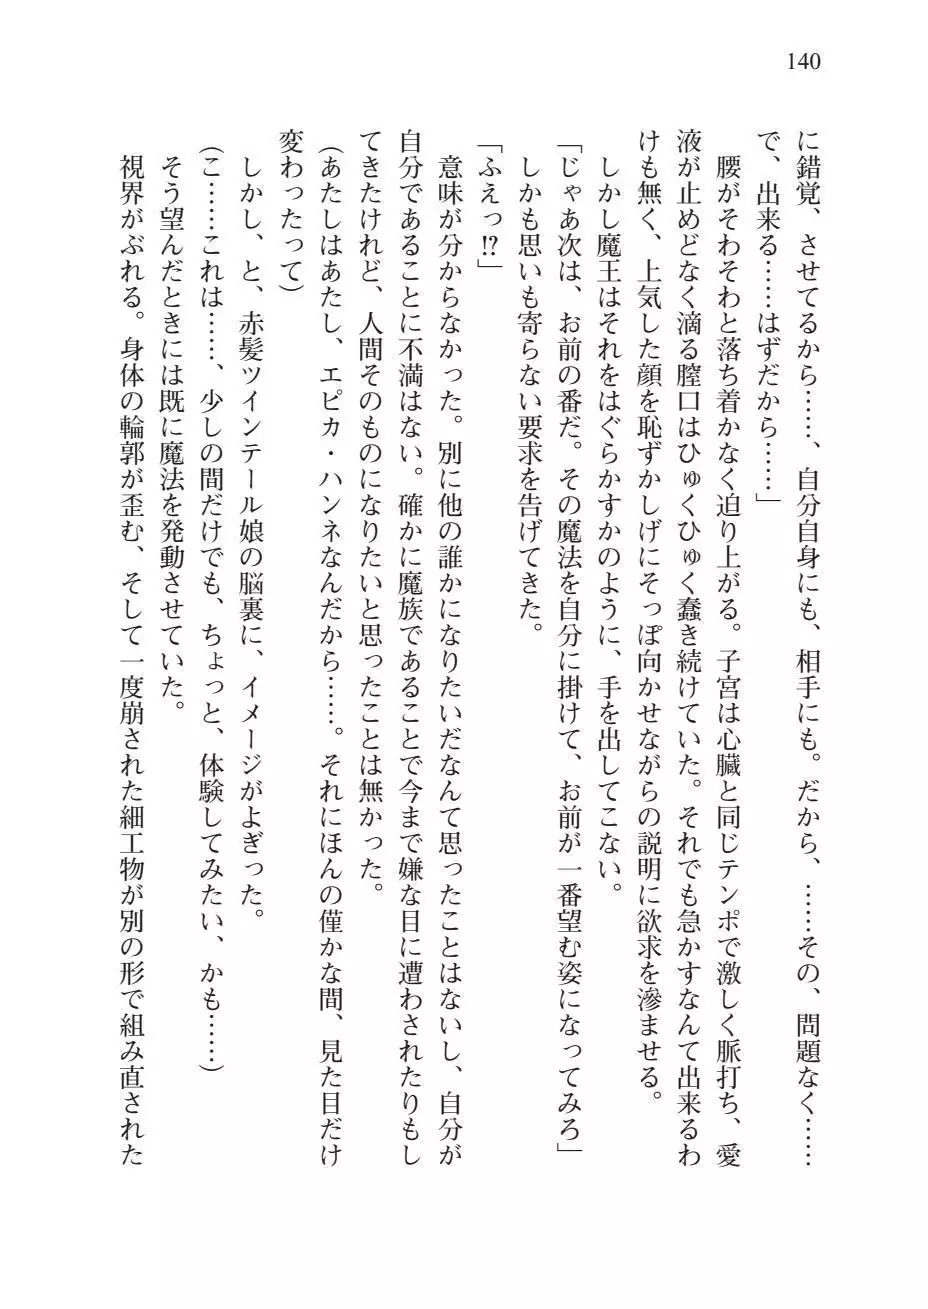 140
に錯覚、させてるから……、自分自身にも、相手にも。だから、……その、問題なく……
で、出来る……はずだから……」
腰がそわそわと落ち着かなく迫り上がる。子宮は心臓と同じテンポで激しく脈打ち、愛
液が止めどなく滴る膣口はひゅくひゅく蠢き続けていた。それでも急かすなんて出来るわ
けも無く、上気した顔を恥ずかしげにそっぽ向かせながらの説明に欲求を滲ませる。
しかし魔王はそれをはぐらかすかのように、手を出してこない。
「じゃあ次は、お前の番だ。その魔法を自分に掛けて、お前が一番望む姿になってみろ」
しかも思いも寄らない要求を告げてきた。
「ふえっ!?」
意味が分からなかった。別に他の誰かになりたいだなんて思ったことはないし、自分が
自分であることに不満はない。確かに魔族であることで今まで嫌な目に遭わされたりもし
てきたけれど、人間そのものになりたいと思ったことは無かった。
(あたしはあたし、エピカ・ハンネなんだから……。それにほんの僅かな間、見た目だけ
変わったって)
しかし、と、赤髪ツインテール娘の脳裏に、イメージがよぎった。
(こ……これは……、少しの間だけでも、ちょっと、体験してみたい、かも……)
そう望んだときには既に魔法を発動させていた。
視界がぶれる。身体の輪郭が歪む、そして一度崩された細工物が別の形で組み直された